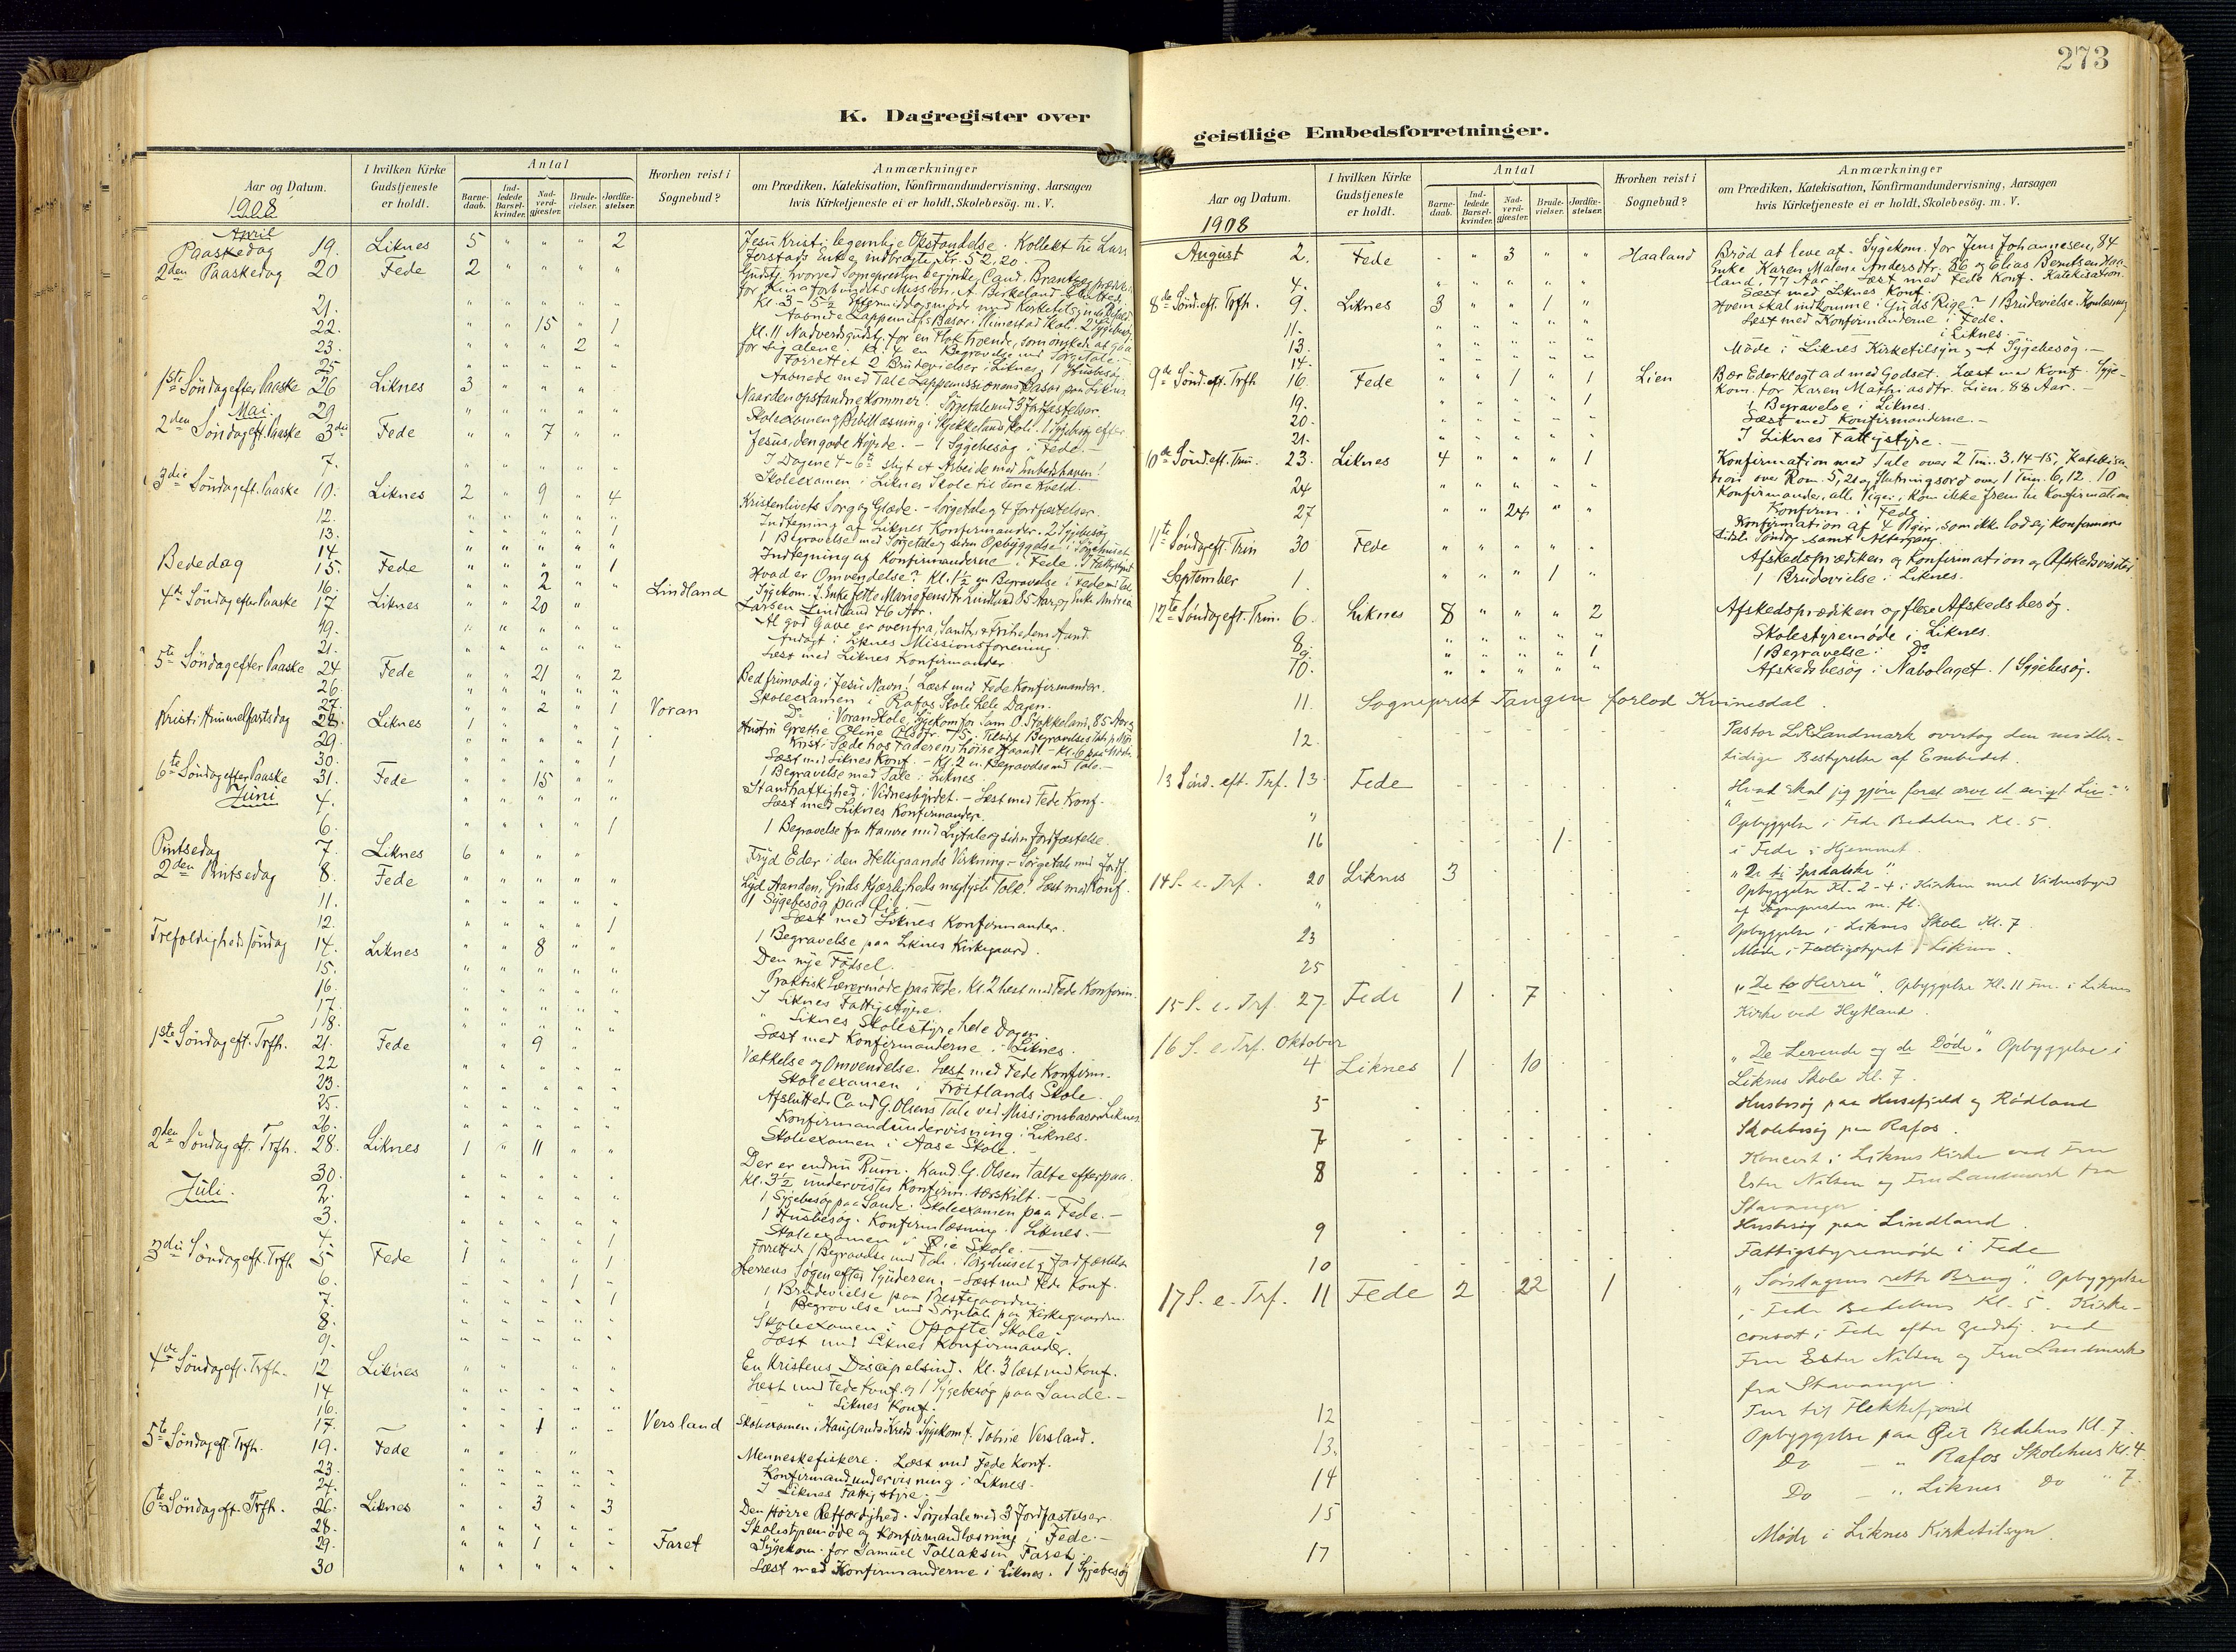 273
K. Dagregister over
geistlige Embedsforretninger.
Aar og Datum.
I hvilken Kirke Gudstjeneste er holdt.
Antal
Barnedaab.
Indledede Barselkvinder.
Nadverdgjæster.
Brudevielser.
Jordfæstelser.
Hvorhen reist i Sognebud?
Anmærkninger
om Prædiken, Katekisation, Konfirmandundervisning, Aarsagen
hvis Kirketjeneste ei er holdt, Skolebesög. m. V.
1908
April
Paaskedag 19. Liknes 5 " " " 2 Jesu Kristi legemlige Opstandelse. Kollekt til Lars
2den Paaskedag 20 Fede 2 " " " " Enke indbragte Kr. 52,20.
21. " " " " "
22. " " 15 " 1
23. " " " 2 "
Forrettet 2 Brudevielser i Liknes, 1 Husbesøg
25 " " " " "
1ste Søndag efter Paaske 26 Liknes 3 " " " "
Mai. 29 " " " " "
2den Søndag eft. Paaske 3die Fede " " 7 " " Jesus, den gode Hyrde. - 1 Sygebesøg i Fede.
7. " " " " " Skoleexamen i Liknes Skole til sene Kveld.
3die Søndag eft. Paaske 10. Liknes 2 " 9 " 4 Kristenlivets Sorg og Glæde. - Sørgetale og 4 Jordfæstelser.
12. " " " " " Indtegning af Liknes Konfirmander. 2 Sygebesøg
13. " " " " 1 1 Begravelse med Sørgetale
14. " " " " " Indtegning af Konfirmanderne i Fede.
Bededag 15. Fede " " " " 1 Hvad er Omvendelse? Kl. 1½ en Begravelse i Fede
16. " " 2 " " Lindland
4de Søndag efter Paaske 17 Liknes " " 20 " " Larsen Lindland 46 Aar.
19. " " " " " Al god Gave er ovenfra,
21. " " " " " Andagt i Liknes Missionsforening.
Læst med Liknes Konfirmander.
5te Søndag efter Paaske 24 Fede " " 21 " 2 Bed frimodig i Jesu Navn! Læst med Fede Konfirmander.
26. " " " " " Skoleexamen i Rafos Skole hele Dagen.
27. " " 2 " 1 Voran Do i Voran Skole,
Kristi Himmelfartsdag 28. Liknes 1 " " " "
29. " " " " 1 Læst med Liknes Konf. - Kl. 2 en Begravelse med Tale.
30. " " " " 1 1 Begravelse med Tale i Liknes.
6te Søndag efter Paaske 31. Fede " " 15 " " Standhaftighed i Vidnesbyrdet. - Læst med Fede Konf.
Juni 4. " " " " " Læst med Liknes Konfirmander.
6. " " " " 1 1 Begravelse fra Hamre med Ligtale og siden Jordfæstelse.
Pintsedag 7. Liknes 6 " " " Fryd Eder i den Helligaands Virkning. - Sørgetale med Jordf.
2den Pintsedag 8. Fede " " " " " Lyd Aanden, Guds Kjærligheds Tolk! Læst med Konf.
11. " " " " " Læst med Liknes Konfirmander.
12. " " " " 1 1 Begravelse paa Liknes Kirkegaard.
Trefoldigheds søndag 14. Liknes " " 8 " " Den nye Fødsel.
15. " " " " " Praktisk Lærermøde paa Fede. Kl. 2 læst med Fede Konfirm.
16. " " " " " I Liknes Fattigstyre.
17. " " " " " " Liknes Skolestyre hele Dagen.
18. " " " " " Læst med Konfirmanderne i Liknes.
1ste Søndag eft. Trfh. 21. Fede " " 9 " " Vækkelse og Omvendelse. Læst med Fede Konfirm.
22 " " " " " Skoleexamen i Frøitlands Skole.
23. " " " " " Afsluttede Cand G. Olsens Tale ved Missionsbasar Liknes
25. " " " " " Konfirmandundervisning i Liknes.
26. " " " " " Skoleexamen i Aase Skole.
2den Søndag eft. Trfh. 28. Liknes 1 " 11 " " Der er endnu Rum. Kand. G. Olsen talte efterpaa.
Kl. 3½ undervistes Konfirm. særskilt. -
30. " " " " " 1 Sygebesøg paa Sande. Skoleexamen paa Fede. -
Juli. 2. " " " " " 1 Husbesøg. Konfirmlæsning. Liknes. -
3. " " " " " Skoleexamen i Øie Skole. -
4. " " " " 1 Forrettede 1 Begravelse med Tale
3die Søndag eft. Trfh 5 Fede 1 " " " 1 Herrens Søgen efter Synderen. - Læst med Fede Konf.
6. " " " 1 " 1 Brudevielse paa Prestegaarden.
7. " " " " 1 1 Begravelse med Sørgetale paa Kirkegaarden.
8. " " " " " Skoleexamen i Opofte Skole.
9. " " " " " Læst med Liknes Konfirmander.
4de Søndag eft. Trfh. 12 Liknes " " " " En Kristens Discipelsind. Kl. 3 læst med Konf.
14 " " " " " Læst med Fede Konf. og 1 Sygebesøg paa Sande. -
16. " " " " " " " Liknes Konf.
17. " " 1 " " Versland Skoleexamen i Hauglands Kreds. Sygekom f. Tobine Versland.
5te Søndag eft. Trfh. 19. Fede " " " " Menneskefiskere. Læst med Fede Konf.
23. " " " " " Konfirmandundervisning i Liknes.
24. " " " " " I Liknes Fattigstyre.
6te Søndag eft. Trfh. 26. Liknes " " 3 " 3 Den større Retfærdighed. Sørgetale med 3 Jordfæstelser
28. " " " " " Skolestyremøde og Konfirmandlæsning i Fede. -
29. " " 1 " " Faret Sygekom. for Samuel Tollaksen Faret.
30 " " " " " Læst med Konfirmanderne i Liknes. 1 Sygebesøg
Aar og Datum.
I hvilken Kirke Gudstjeneste er holdt.
Antal
Barnedaab.
Indledede Barselkvinder.
Nadverdgjæster.
Brudevielser.
Jordfæstelser.
Hvorhen reist i Sognebud?
Anmærkninger
om Prædiken, Katekisation, Konfirmandundervisning, Aarsagen
hvis Kirketjeneste ei er holdt, Skolebesög. m. V.
1908
August 2. Fede " " 3 " " Haaland Brød at leve af. Sygekom. for Jens Johannesen, 84
Enke Karen Malene Andersdtr. 86 og Elias Berntsen Haaland, 77 Aar. Læst med Fede Konf. Katekisation.
4. " " " " " Læst med Liknes Konf.
8de Sønd. eft. Trfh. 9. Liknes 3 " " 1 " Hvem skal indkomme i Guds Rige? 1 Brudevielse. Konflæsning
11. " " " " " Læst med Konfirmanderne i Fede.
13. " " " " " i Liknes.
14. " " " " " Møde i Liknes Kirketilsyn og et Sygebesøg. -
9de Sønd. eft. Trfh 16. Fede " " 1 " 1 Lien Bær Eder klogt ad med Godset. Læst med Konf. Sygekom. for Karen Mathiasdtr. Lien, 88 Aar. -
19. " " " " 1 1 Begravelse i Liknes.
20. " " " " " Læst med Konfirmanderne. -
21. " " " " " I Liknes Fattigstyre. -
10de Sønd. eft. Trin. 23. Liknes 4 " " " 1 Konfirmation med Tale over 2 Tim. 3,14-15, Katekisation over Rom. 5,21 og Slutningsord over 1 Tim. 6,12. 10
Konfirmander, alle Piger, kom ikke frem til Konfirmation
24 " " " " " Konfirm. i Fede
27 " " 24 " " Konfirmation af 4 Piger, som ikke lod sig konfirmere
sidste Søndag samt Altergang.
11te Søndag eft. Trin 30 Fede " " " " " Afskedsprædiken og Konfirmation og Afskedsvisiter
September 1. " " " 1 " 1 Brudevielse i Liknes.
12te Søndag eft. Trin. 6. Liknes 8 " " " 2 Afskedsprædiken og flere Afskedsbesøg.
8 " " " " " Skolestyremøde i Liknes.
9. " " " " 1 1 Begravelse i Do
10. " " " " " Afskedsbesøg i Nabolaget. 1 Sygebesøg.
11. Sogneprest Tangen forlod Kvinesdal.
12. Pastor L.R. Landmark overtog den midlertidige Bestyrelse af Embedet.
13 Sønd. eft. Trf. 13. Fede "Hvad skal jeg gjøre for at arve et evigt Liv?"
" Opbyggelse i Fede Bedehus Kl. 5.
16 1 i Fede i Hjemmet.
14 S. e. Trf. 20 Liknes 3 "De ti Spedalske."
" Opbyggelse Kl. 2-4 i Kirken med Vidnesbyrd
af Sognepresten m. fl.
Opbyggelse i Liknes Skole Kl. 7
23 Møde i Fattigstyret i Liknes.
25
15 S. e. Trf. 27 Fede 1 7 "De to Herrer". Opbyggelse Kl. 11 Fm. i Liknes
Kirke ved Hytland.
16 S. e. Trf. Oktober
4 Liknes 1 10 "De Levende og de Døde." Opbyggelse i
Liknes Skole Kl. 7.
5 Husbesøg paa Husefjeld og Rødland
7 Skolebesøg paa Rafos.
8 Koncert i Liknes Kirke ved Fru
Ester Nilsen og Fru Landmark fra
Stavanger
9 Husbesøg paa Lindland
10 Fattigstyremøde i Fede
17 S. e. Trf. 11 Fede 2 22 1 "Søndagens rette Brug". Opbyggelse
i Fede Bedehus Kl. 5. Kirkeconsert i Fede efter Gudstj. ved
Fru Ester Nilsen og Fru Landmark
fra Stavanger.
12 Tur til Flekkefjord
13. Opbyggelse paa Øie Bedehus Kl. 7.
14 Do - " Rafos Skolehus Kl. 4.
15 Do - " Liknes Do " 7.
17 Møde i Liknes Kirketilsyn.